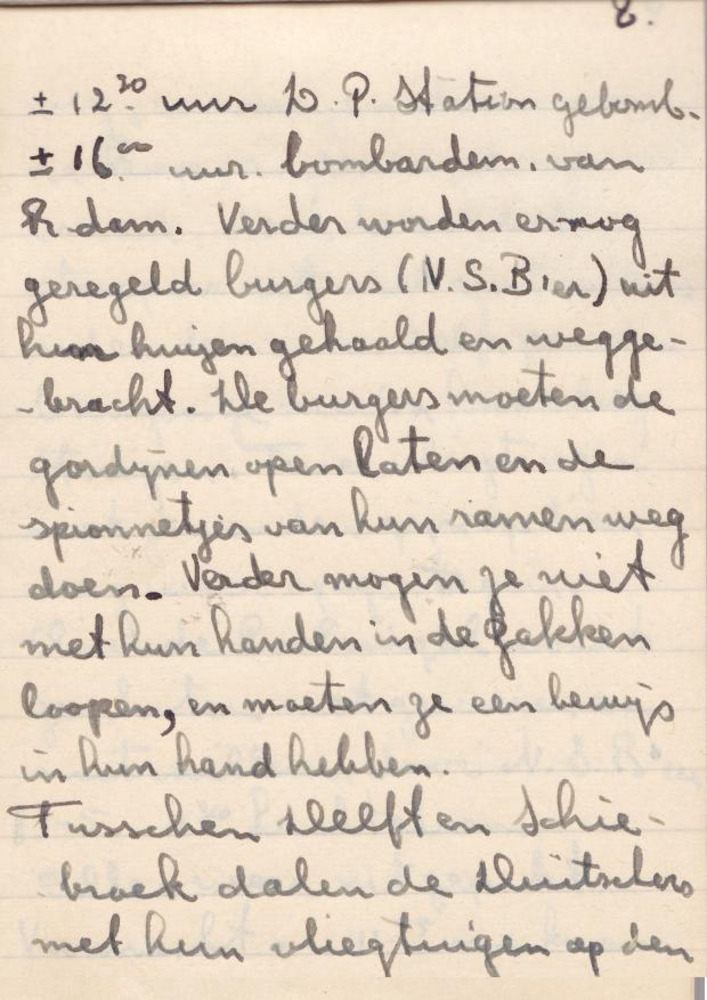 8.
± 12.30 uur D.P. Station gebomb.
± 16.00 uur. bombardem. van
R dam. Verder worden er nog
geregeld burgers (N.S.B'er) uit
hun huizen gehaald en wegge-
-bracht. De burgers moeten de
gordijnen open laten en de
spionnetjes van hun ramen weg
doen. Verder mogen ze niet
met hun handen in de zakken
loopen, en moeten ze een bewijs
in hun hand hebben.
Tusschen Delft en Schie-
broek dalen de Duitschers
met hun vliegtuigen op den